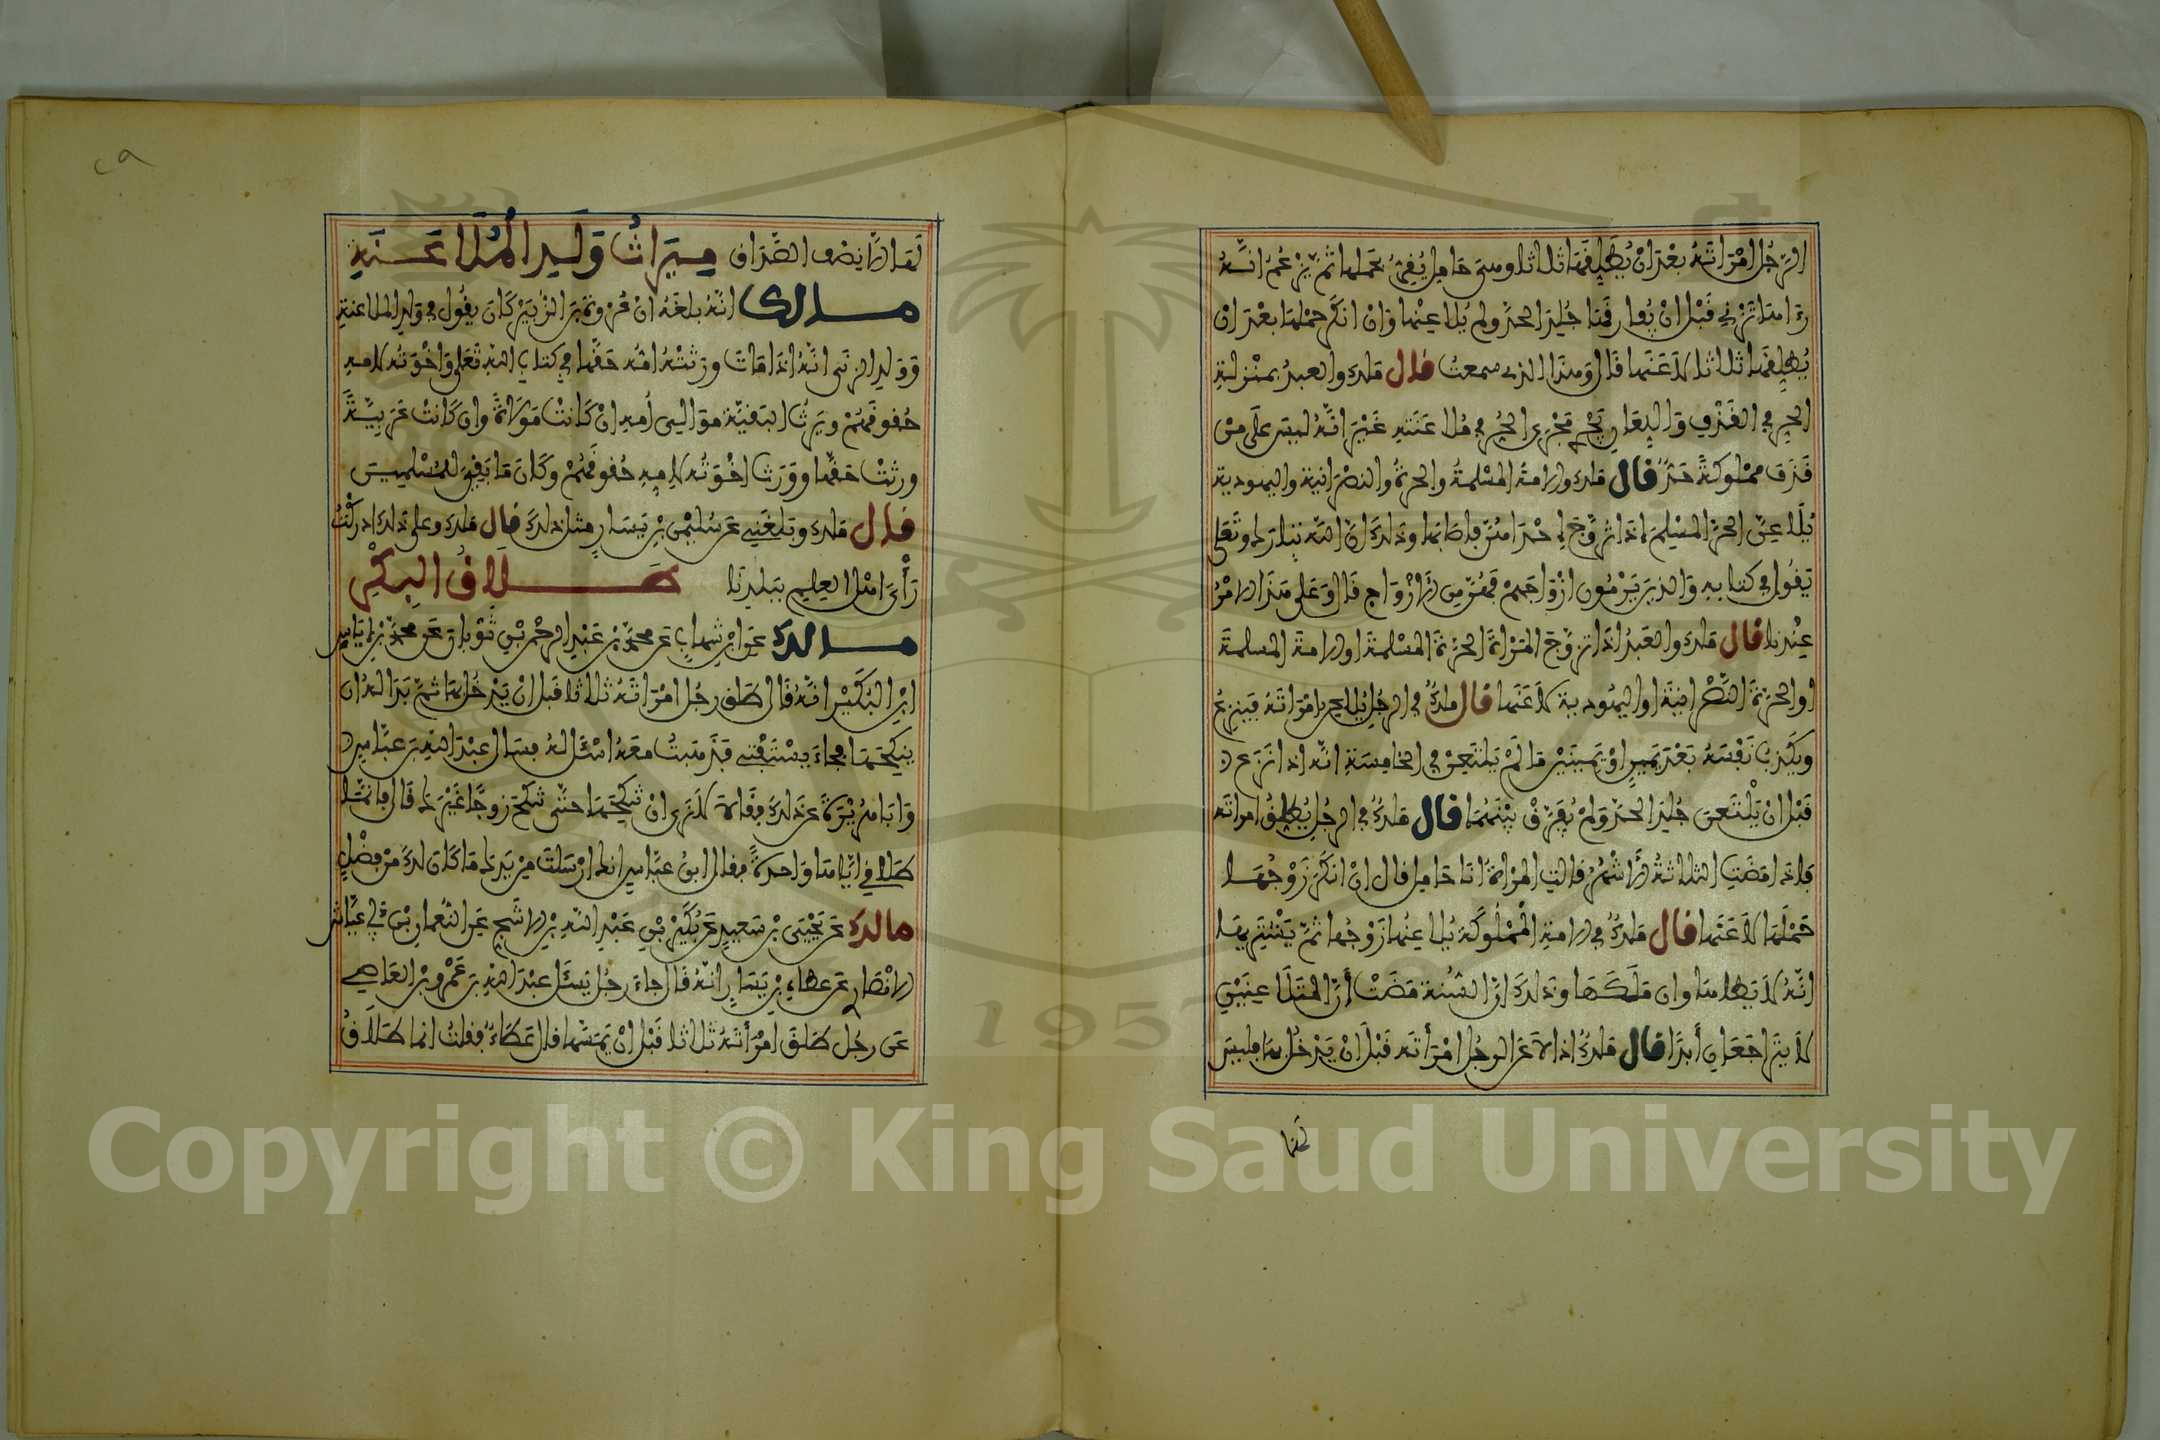 الرجل امراته بعد ان يطلقها ثلاثا وهي حامل يقر بحملها ثم يزعم انه
رءاها تزني قبل ان يفارقها جلد الحد ولم يلاعنها وان انكر حملها بعد ان
يطلقها ثلاثا لاعنها قال وهذا الذي سمعت قال ملك والعبد بمنزلة
الحر في القذف واللعان يجري مجرى الحر في ملاعنته غير انه ليس على من
قذف مملوكة حد قال ملك والامة المسلمة والحرة النصرانية واليهودية
تلاعن الحر المسلم اذا تزوج احداهن فاصابها وذلك ان الله تبارك وتعلى
يقول في كتابه والذين يرمون ازواجهم فهن من الازواج قال وعلى هذا الامر
عندنا قال ملك والعبد اذا تزوج المراة الحرة المسلمة او الامة المسلمة
او الحرة النصرانية او اليهودية لاعنها قال ملك في الرجل يلاعن امراته فينزع
ويكذب نفسه بعد يمين او يمينين ما لم يلتعن في الخامسة انه اذا نزع
قبل ان يلتعن جلد الحد ولم يفرق بينهما قال ملك في الرجل يطلق امراته
فاذا مضت الثلاثة الاشهر قالت المراة انا حامل قال ان انكر زوجها
حملها لاعنها قال ملك في الامة المملوكة يلاعنها زوجها ثم يشتريها
انه لا يطاها وان ملكها وذلك ان السنة مضت أن المتلاعنين
لا يتراجعان أبدا قال ملك اذا لاعن الرجل امرأته قبل ان يدخل بها فليس
لها
٢٩
لها الا نصف الصداق ميراث ولد الملاعنة
مالك انه بلغه ان عروة بن الزبير كان يقول في ولد الملاعنة
وولد الزنى انه اذا مات ورثته امه حقها في كتاب الله تعلى واخوته لامه
حقوقهم ويرث البقية موالي أمه ان كانت مولاة وان كانت عربية
ورثت حقها وورث اخوته لامه حقوقهم وكان ما بقي للمسلمين
قال ملك وبلغني عن سليمن بن يسار مثل ذلك قال ملك وعلى ذلك ادركت
رأي اهل العلم ببلدنا طلاق البكر
مالك عن ابن شهاب عن محمد بن عبد الرحمن بن ثوبان عن محمد بن اياس
ابن البكير انه قال طلق رجل امراته ثلاثا قبل ان يدخل بها ثم بدا له ان
ينكحها فجاء يستفتي فذهبت معه اسئل له فسال عبد الله بن عباس
وابا هريرة عن ذلك فقالا لا نرى ان تنكحها حتى تنكح زوجا غيرك قال فانما
طلاقي اياها واحدة فقال ابن عباس انك ارسلت من يدك ما كان لك من فضل
مالك عن يحيى بن سعيد عن بكير بن عبد الله بن الاشج عن النعمان بن ابي عياش
الانصاري عن عطاء بن يسار انه قال جاء رجل يسئل عبد الله بن عمرو بن العاصي
عن رجل طلق امرأته ثلاثا قبل ان يمسها قال عطاء فقلت انما طلاق